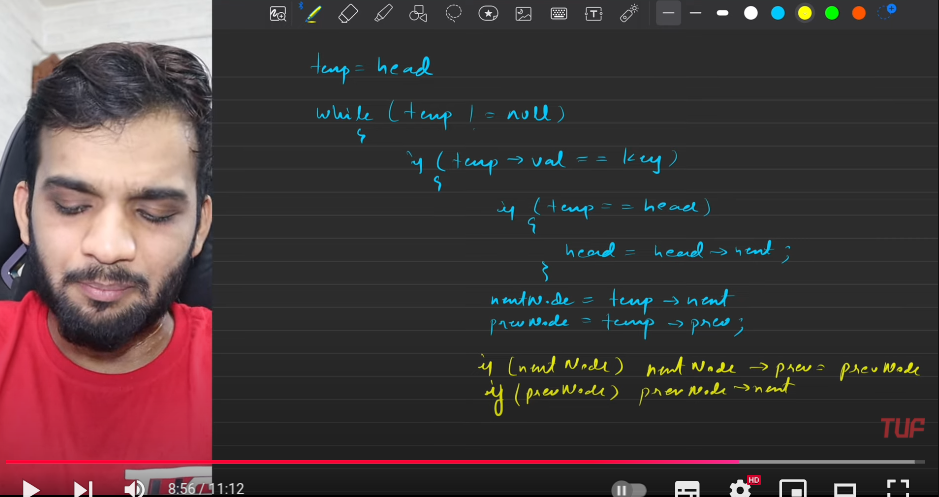 temp = head
while (temp != null)
{
if (temp → val == key)
{
if (temp == head)
{
head = head → next;
}
nextNode = temp → next
prevNode = temp → prev;
if (nextNode) nextNode → prev = prevNode
if (prevNode) prevNode → next
TUF
8:56 / 11:12
HD